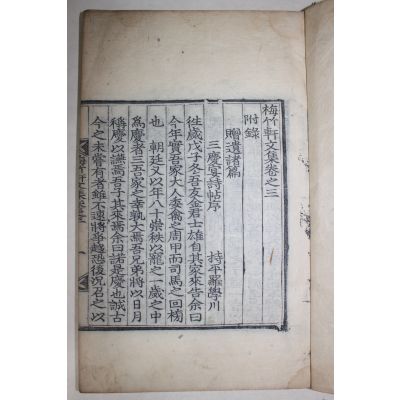 梅竹軒文集卷之三
附錄
贈遺諸篇
三慶宴詩帖序　持平羅學川
徃歲戊子冬吾友金君士雄自其家來告余曰
今年實吾家大人委禽之周甲而司馬之回榜
也　朝廷又以年八十崇秩以寵之一歲之中
爲慶者三吾家之幸孰大焉吾兄弟將以日月
稱慶以讌焉吾子其來焉余曰諾是慶也誠古
今之未嘗有者雖不速將爭趍恐後况召之以